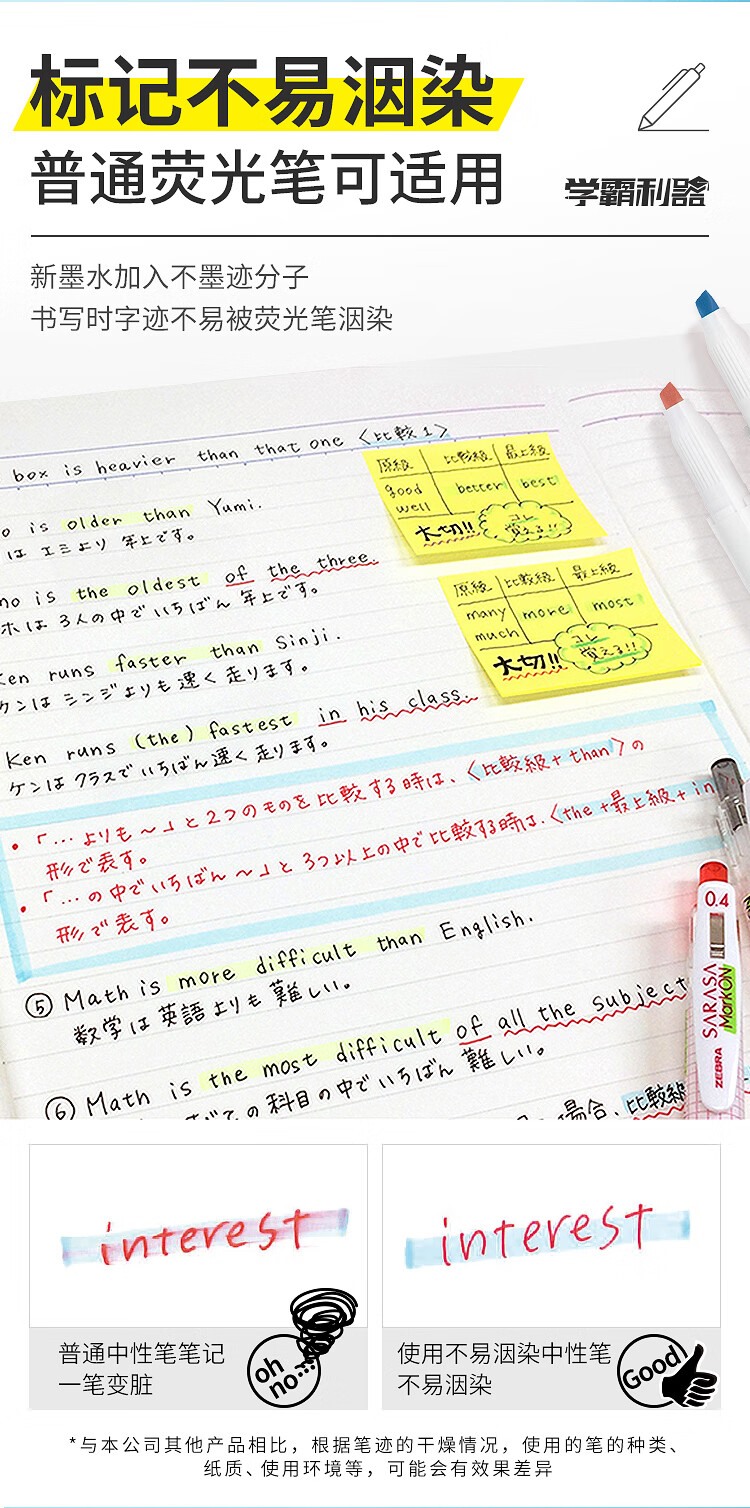 标记不易洇染
普通荧光笔可适用
学霸利器
新墨水加入不墨迹分子
书写时字迹不易被荧光笔洇染
box is heavier than that one 〈比較1〉
原級 比較級 最上級
good better best
well
大切!! コレ
覚える!!
o is older than Yumi.
は エミより 年上です。
no is the oldest of the three.
ホは 3人の中で いちばん 年上です。
原級 比較級 最上級
many more most
much
大切!! コレ
覚える!!
Ken runs faster than Sinji.
ケンは シンジよりも 速く 走ります。
Ken runs (the) fastest in his class.
ケンは クラスで いちばん 速く 走ります。
・「… よりも ～」と 2つのものを 比較する 時は、〈比較級 + than〉の
形で 表す。
・「… の中で いちばん ～」と 3つ以上の中で 比較する時は.〈the + 最上級 + in
形で 表す。
⑤ Math is more difficult than English.
数学は 英語よりも 難しい。
⑥ Math is the most difficult of all the subject
べての科目の中で いちばん 難しい。
場合、比較級
0.4
SARASA
MarkON
ZEBRA
interest
interest
普通中性笔笔记
一笔变脏
oh
no...
使用不易洇染中性笔
不易洇染
Good!
*与本公司其他产品相比，根据笔迹的干燥情况，使用的笔的种类、
纸质、使用环境等，可能会有效果差异